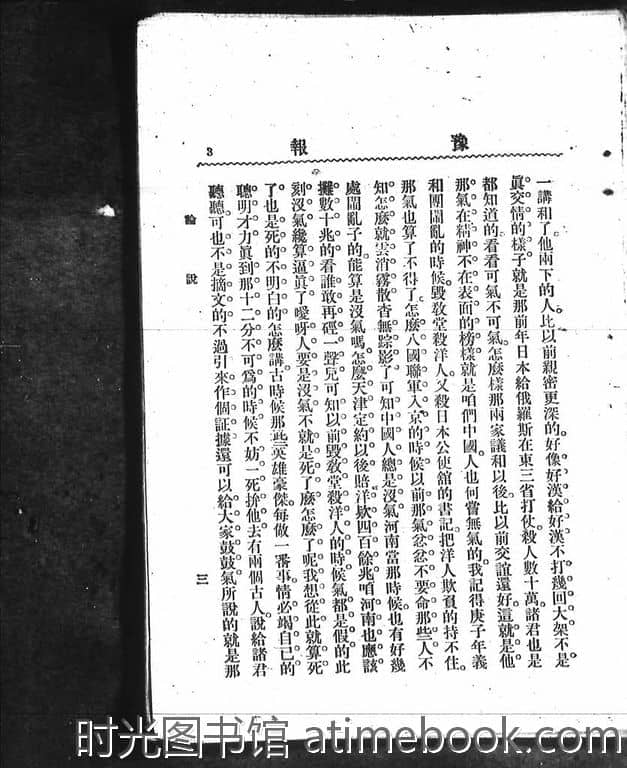 豫報
3
一講和了他兩下的人比以前親密更深的好像好漢給好漢不打幾回大架不是
眞交情的樣子就是那前年日本給俄羅斯在東三省打仗殺人數十萬諸君也是
都知道的看看可氣不可氣怎麼樣那兩家議和以後比以前交誼還好這就是他
那氣在精神不在表面的榜樣就是咱們中國人也何嘗無氣的我記得庚子年義
和團鬧亂的時候毀敎堂殺洋人又殺日本公使館的書記把洋人欺負的持不住
那氣也算了不得了怎麼八國聯軍入京的時候以前那氣忿忿不要命那些人不
知怎麼就雲消霧散杳無踪影了可知中國人總是沒氣河南當那時候也有好幾
處鬧亂子的能算是沒氣嗎怎麼天津定約以後賠洋欵四百餘兆咱河南也應該
攤數十兆的看誰敢再硜一聲兒可知以前毀敎堂殺洋人的時候氣都是假的此
刻沒氣纔算逼眞了噯呀人要是沒氣不就是死了麼怎麼了呢我想從此就算死
了也是死的不明白的怎麼講古時候那些英雄豪傑每做一番事情必竭自己的
聰明才力眞到那十二分不可爲的時候不妨一死拚他去有兩個古人說給諸君
聽聽可也不是摘文的不過引來作個証據還可以給大家鼓鼓氣所說的就是那
論說
三
时光图书馆 atimebook.com